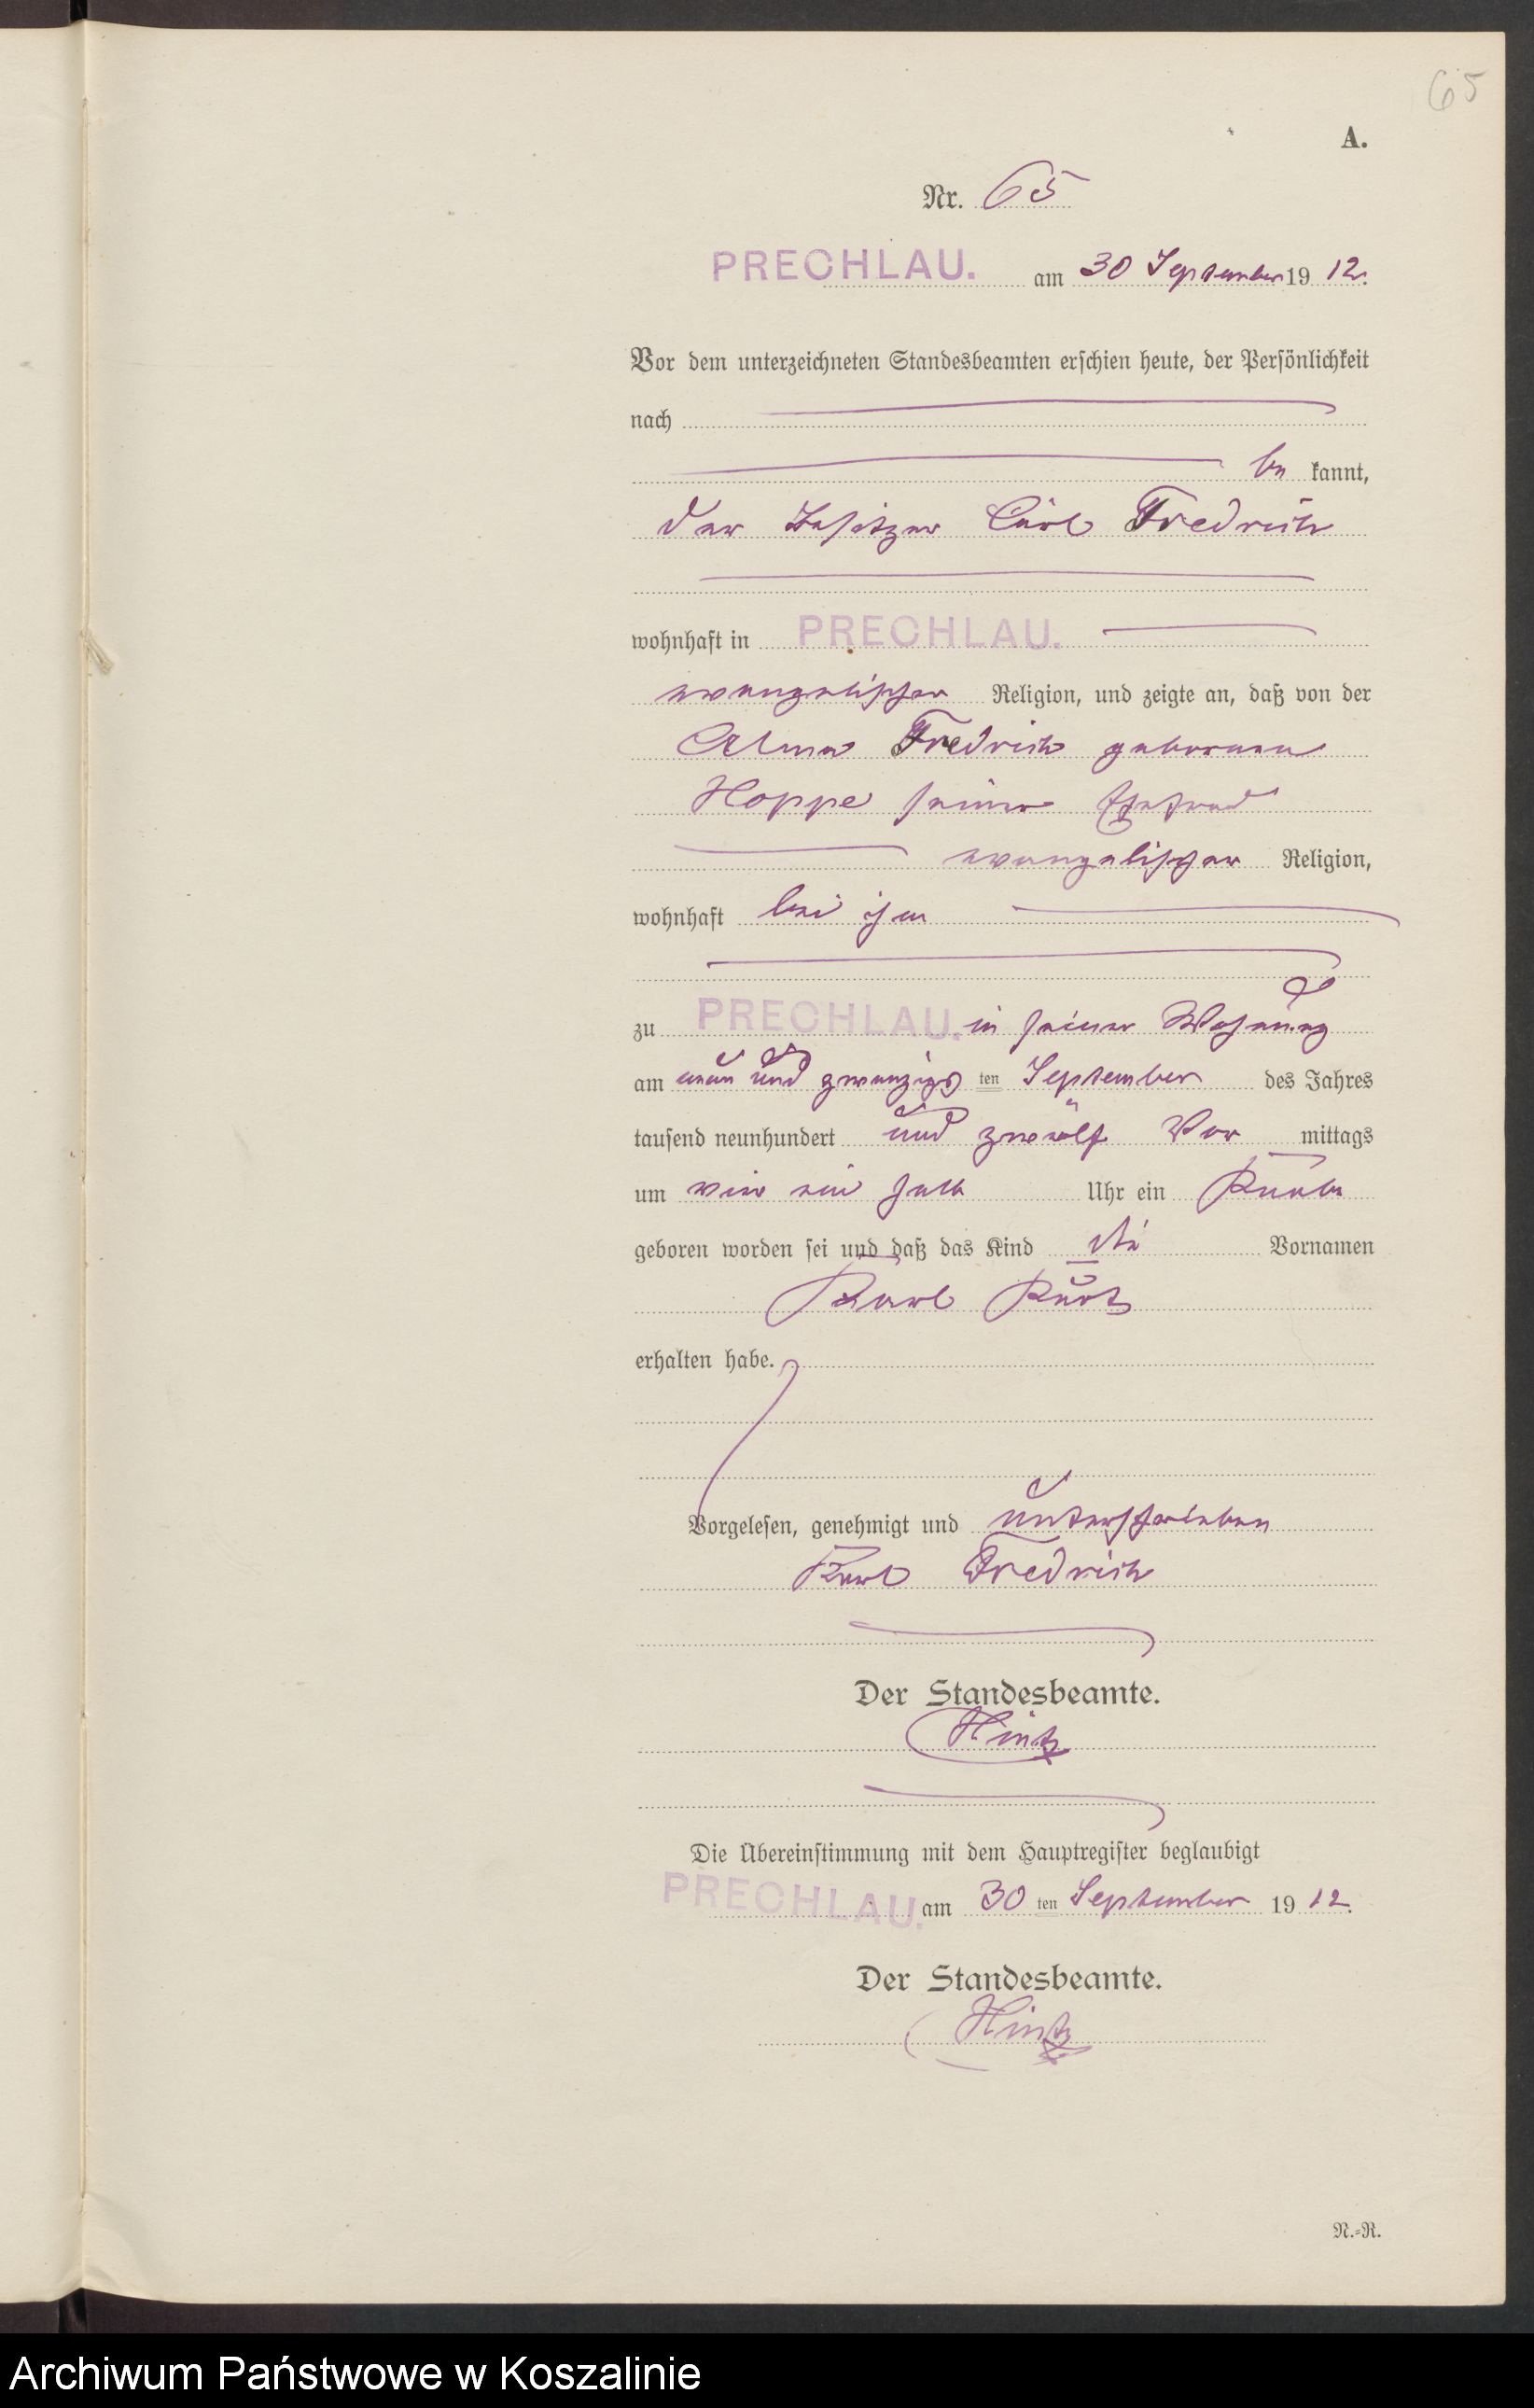 65
A.
Nr. 65
PRECHLAU. am 30 September 1912.
Vor dem unterzeichneten Standesbeamten erschien heute, der Persönlichkeit
nach
be kannt,
der Besitzer Carl Fredrich
wohnhaft in PRECHLAU.
evangelischer Religion, und zeigte an, daß von der
Alma Fredrich geborenen
Hoppe seiner Ehefrau
evangelischer Religion,
wohnhaft bei ihm
zu PRECHLAU. in seiner Wohnung
am neun und zwanzigs ten September des Jahres
tausend neunhundert und zwölf Vor mittags
um vier ein halb Uhr ein Knabe
geboren worden sei und daß das Kind die Vornamen
Karl Kurt
erhalten habe.
Vorgelesen, genehmigt und unterschrieben
Karl Fredrich
Der Standesbeamte.
Hintz
Die Übereinstimmung mit dem Hauptregister beglaubigt
PRECHLAU. am 30 ten September 1912.
Der Standesbeamte.
Hintz
N.=R.
Archiwum Państwowe w Koszalinie